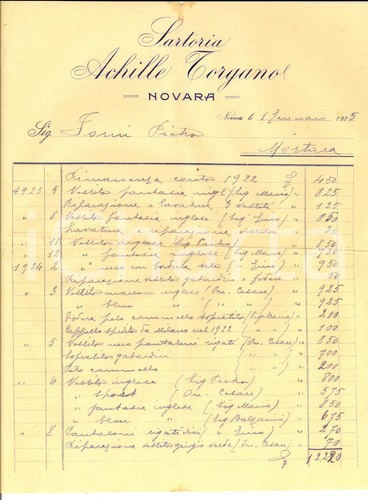 Sartoria
Achille Torgano
NOVARA
Novara li 1 Gennaio 1925
Sig. Forni Pietro
Mortara
Rimanenza conto 1922 £ 450
1923 5 Vestito fantasia ingl (Sig. Mario) 825
Riparazione e lavatura 3 vestiti 125
" 8 Vestito fantasia inglese (Sig. Gino) 850
Lavatura e riparazione 30
" 11 Vestito inglese (Sig. 850
" 12 " fantasia inglese (Sig. Mario) 950
1924 2 " nero con fodera seta (" Gino) 950
Riparazione vestito gabardin e fodere 50
" 3 Vestito marron inglese (On. Cesare) 925
" " " 925
Fodera pelo cammello soprabito (Sig. Mario) 200
Cappello spedito da Milano nel 1922 ( " " ) 100
" 5 Vestito nero pantaloni rigati (On. Cesare) 850
Soprabito gabardin ( " " ) 700
Pelo cammello ( " " ) 200
" 6 Vestito inglese (Sig. Pietro) 800
" sport (On. Cesare) 575
" fantasia inglese (Sig. Mario) 850
" " (Sig. 675
" 8 Pantaloni rigati (" Gino) 270
Riparazione vestito grigio verde (On. Cesare) 70
£ 12220